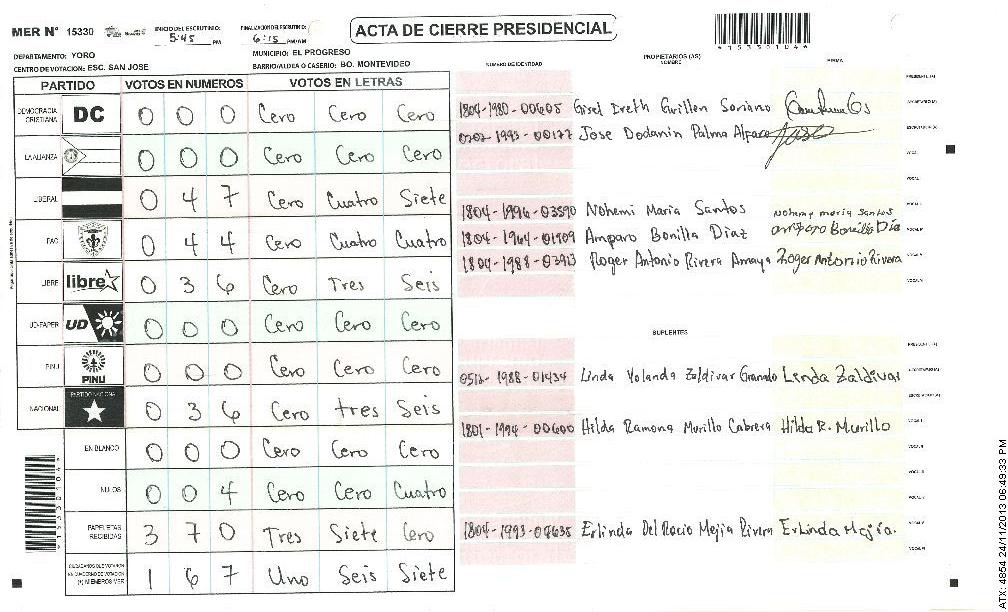 MER N° 15330 INICIO DEL ESCRUTINIO: 5:45 PM FINALIZACION DEL ESCRUTINIO: 6:15 PM/AM
ACTA DE CIERRE PRESIDENCIAL
DEPARTAMENTO: YORO MUNICIPIO: EL PROGRESO
CENTRO DE VOTACION: ESC. SAN JOSE BARRIO/ALDEA O CASERIO: BO. MONTEVIDEO
PARTIDO VOTOS EN NUMEROS VOTOS EN LETRAS
DEMOCRACIA CRISTIANA DC 0 0 0 Cero Cero Cero
LA ALIANZA 0 0 0 Cero Cero Cero
LIBERAL 0 4 7 Cero Cuatro Siete
PAC 0 4 4 Cero Cuatro Cuatro
LIBRE libre 0 3 6 Cero Tres Seis
UD-FAPER UD 0 0 0 Cero Cero Cero
PINU PINU 0 0 0 Cero Cero Cero
NACIONAL PARTIDO NACIONAL 0 3 6 Cero tres Seis
EN BLANCO 0 0 0 Cero Cero Cero
NULOS 0 0 4 Cero Cero Cuatro
PAPELETAS RECIBIDAS 3 7 0 Tres Siete Cero
CIUDADANOS QUE VOTARON EN CUADERNO DE VOTACION (+) MIEMBROS MER 1 6 7 Uno Seis Siete
NUMERO DE IDENTIDAD PROPIETARIOS (AS) NOMBRE FIRMA
1804-1980-00605 Gisel Ireth Guillen Soriano
Jose Dodanin Palma Alfaro
Nohemi Maria Santos Nohemy maria santos
1804-1964-01909 Amparo Bonilla Diaz amparo Bonilla Día
1804-1988-03913 Roger Antonio Rivera Amaya Roger Antonio Rivera
SUPLENTES
Linda Yolanda Zaldivar Granado Linda Zaldivar
1801-1994-00600 Hilda Ramona Murillo Cabrera Hilda R. Murillo
Erlinda Del Rocio Mejia Rivera Erlinda Mejía.
ATX: 4854 24/11/2013 06:49:33 PM